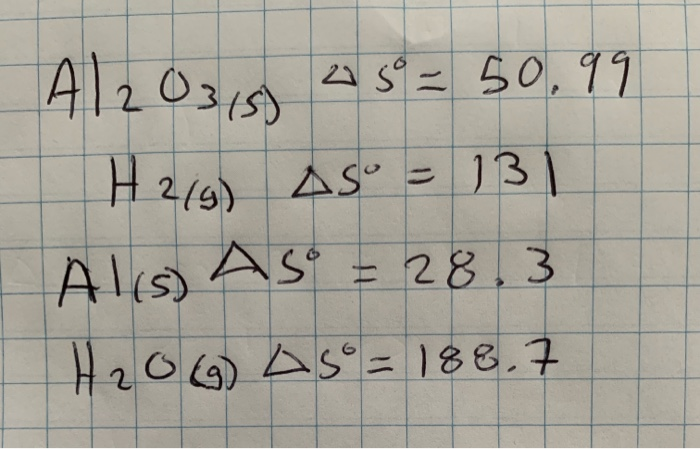 Al₂O₃(s) ΔS° = 50.99
H₂(g) ΔS° = 131
Al(s) ΔS° = 28.3
H₂O(g) ΔS° = 188.7